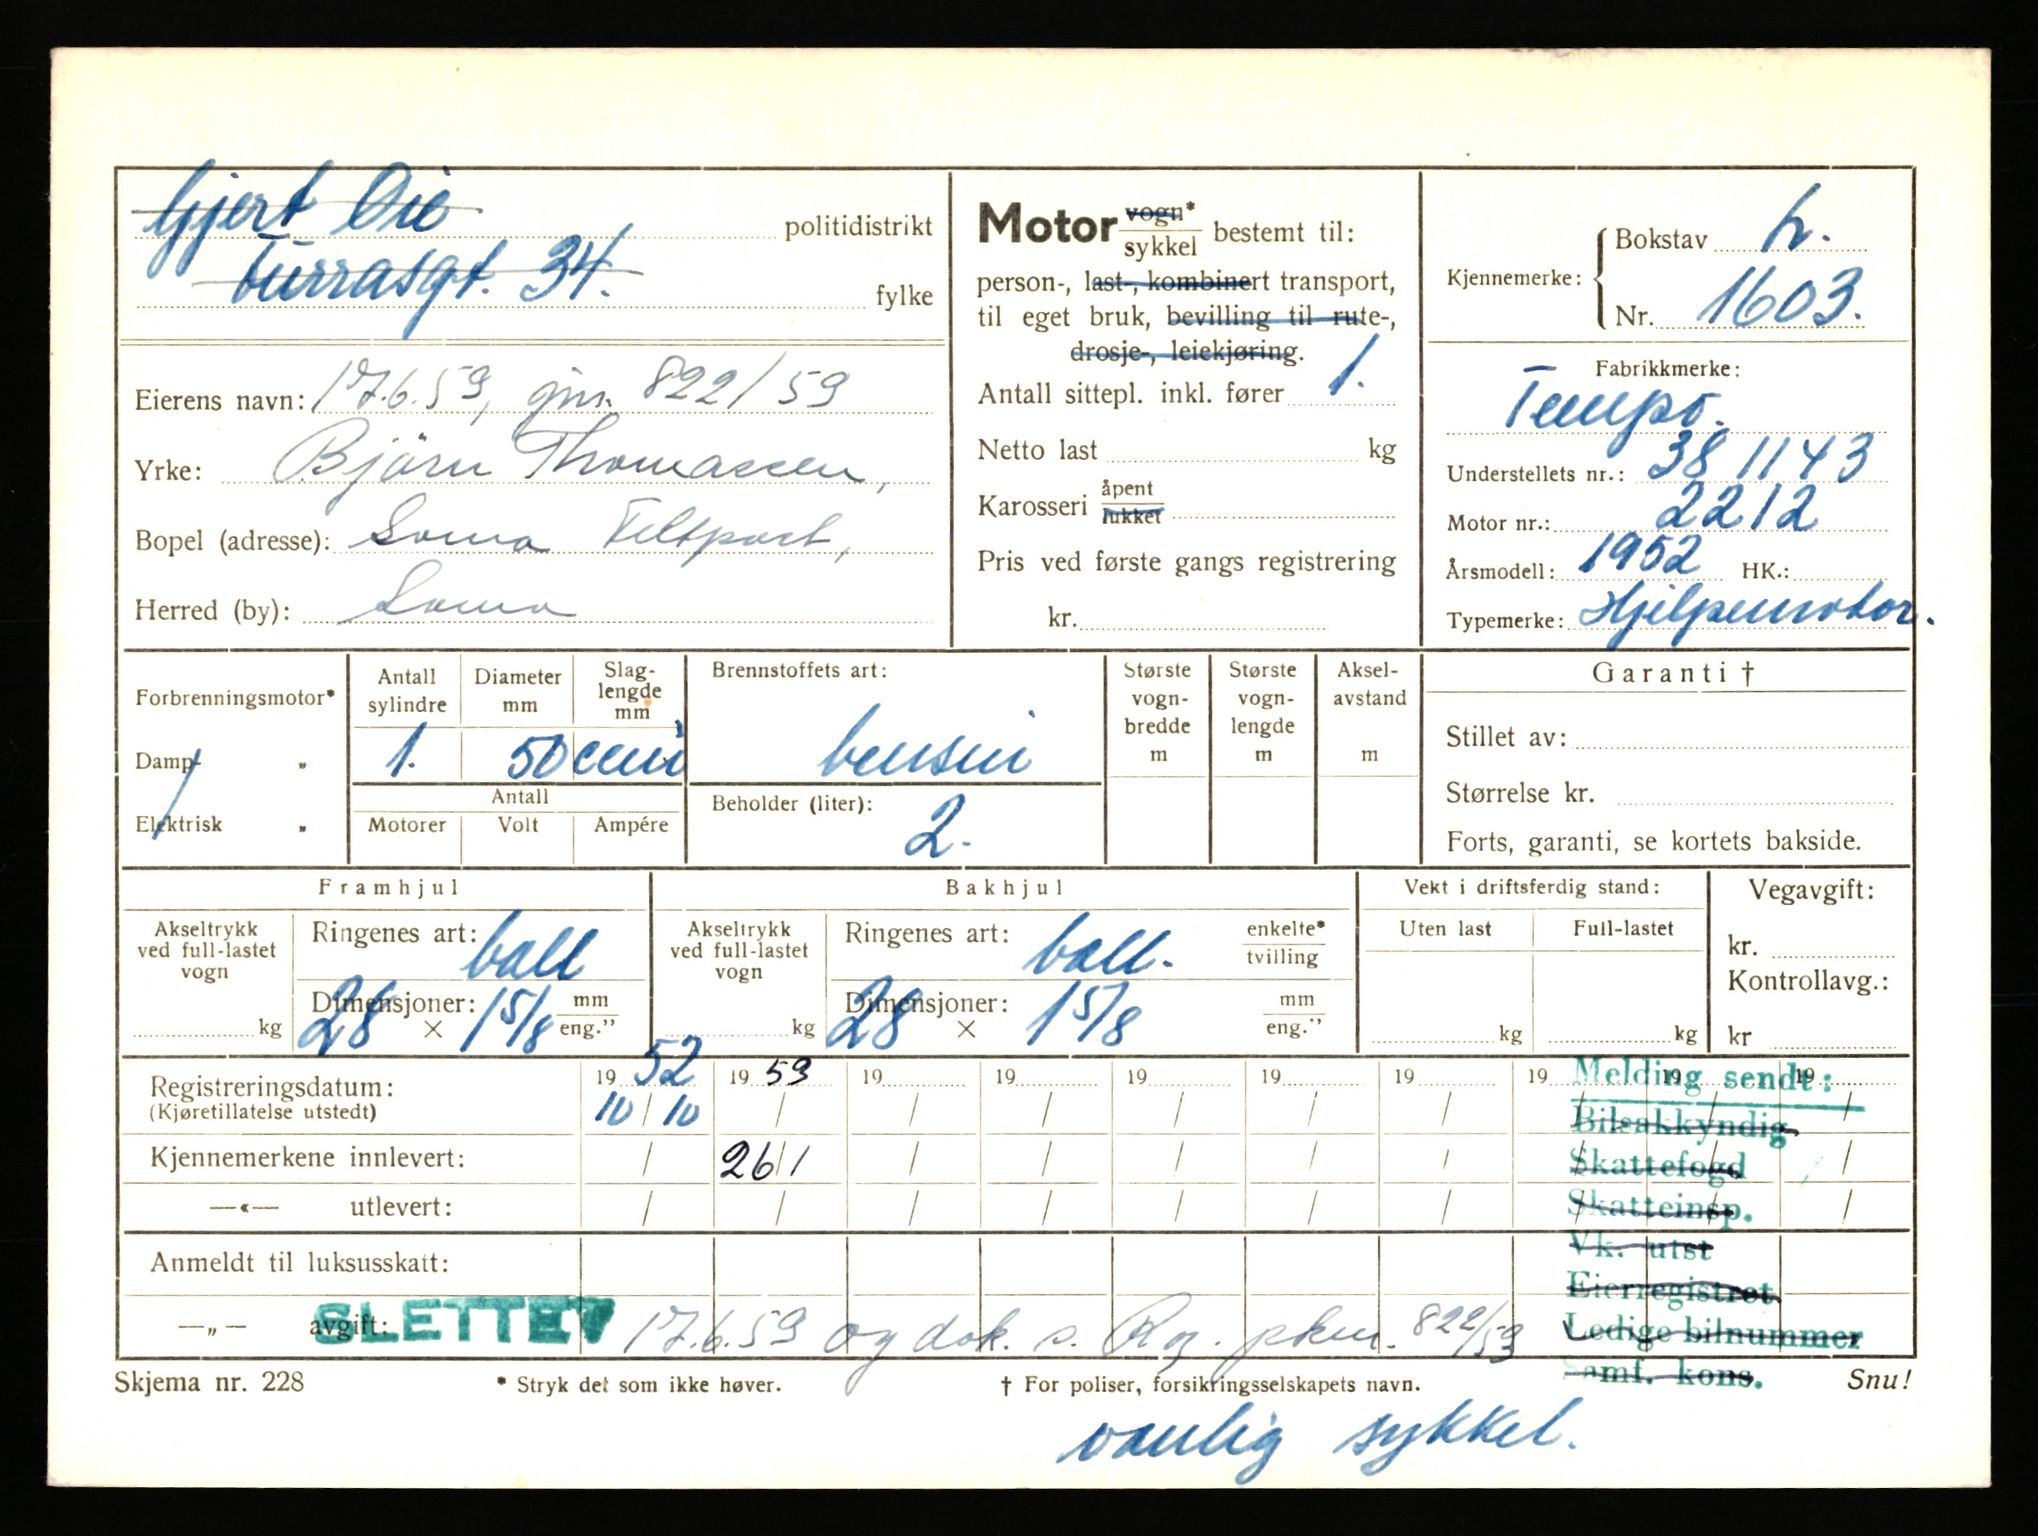 Gjert Oie politidistrikt
Turrasgt. 34. fylke
Eierens navn: 17.6.59, gnr. 822/59
Yrke: Bjørn Thomassen,
Bopel (adresse): Soma Feltpost,
Herred (by): Soma
Motor vogn* / sykkel bestemt til:
person-, last-, kombinert transport,
til eget bruk, bevilling til rute-,
drosje-, leiekjøring.
Antall sittepl. inkl. fører 1.
Netto last kg
Karosseri åpent / lukket
Pris ved første gangs registrering
kr.
Kjennemerke: Bokstav L.
Nr. 1603.
Fabrikkmerke:
Tempo.
Understellets nr.: 381143
Motor nr.: 2212
Årsmodell: 1952 HK.:
Typemerke: Hjelpemotor.
Forbrenningsmotor*
Damp- „
Elektrisk „
Antall sylindre 1.
Diameter mm 50
Slag-lengde mm ccm
Antall
Motorer Volt Ampére
Brennstoffets art:
bensin
Beholder (liter):
2.
Største vogn-bredde m
Største vogn-lengde m
Aksel-avstand m
Garanti †
Stillet av:
Størrelse kr.
Forts, garanti, se kortets bakside.
Framhjul
Akseltrykk ved full-lastet vogn kg
Ringenes art: ball
Dimensjoner: 28 × 1 5/8 mm / eng."
Bakhjul
Akseltrykk ved full-lastet vogn kg
Ringenes art: ball. enkelte* / tvilling
Dimensjoner: 28 × 1 5/8 mm / eng."
Vekt i driftsferdig stand:
Uten last Full-lastet
kg kg
Vegavgift:
kr.
Kontrollavg.:
kr
Registreringsdatum: 1952 1953 19 19 19 19 19 19 19 19
(Kjøretillatelse utstedt) 10/10 / / / / / / / / /
Kjennemerkene innlevert: / 26/1 / / / / / / / /
—«— utlevert: / / / / / / / / / /
Anmeldt til luksusskatt:
—„— avgift: SLETTET 17.6.59 og dok. s. Rg. pkm. 822/59
Melding sendt:
Bilsakkyndig
Skattefogd
Skatteinsp.
Vk. utst
Eierregistret
Ledige bilnummer
Samf. kons.
Skjema nr. 228 * Stryk det som ikke høver. † For poliser, forsikringsselskapets navn. Snu!
vanlig sykkel.